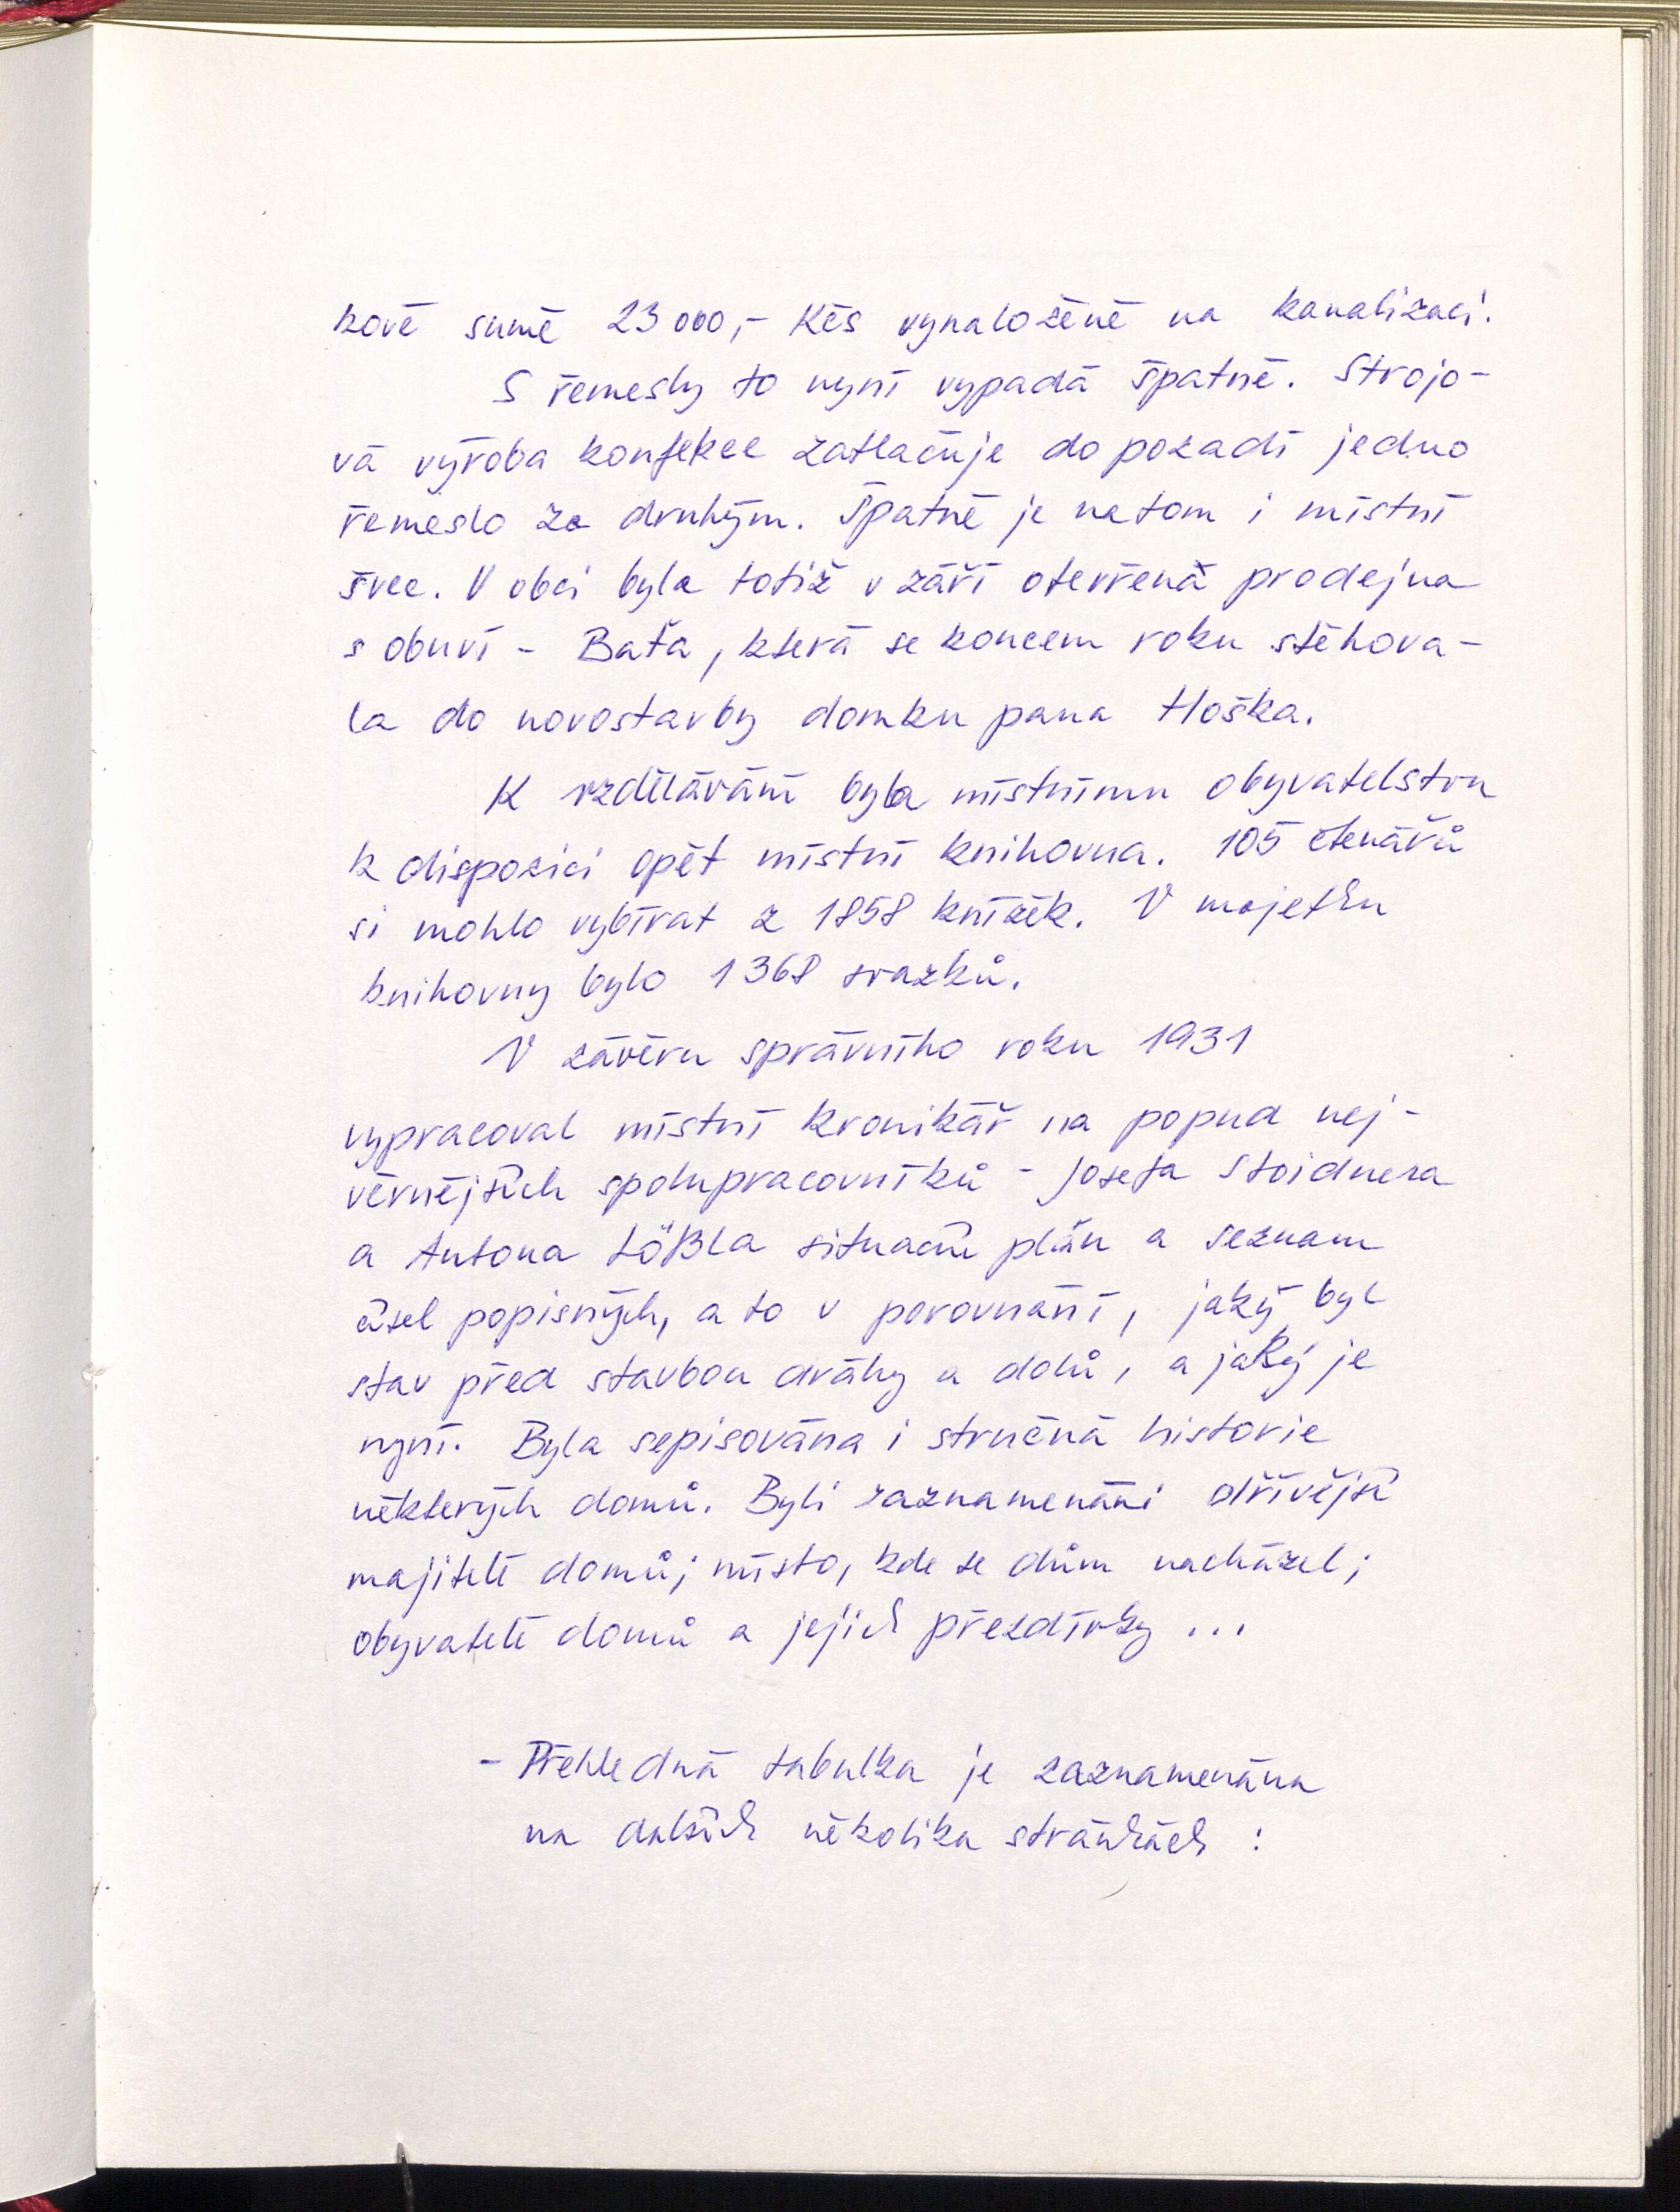 kové sumě 23 000,- Kčs vynaložené na kanalizaci.
S řemesly to nyní vypadá špatně. Strojo-
vá výroba konfekce zatlačuje do pozadí jedno
řemeslo za druhým. Špatně je na tom i místní
švec. V obci byla totiž v září otevřená prodejna
s obuví - Baťa, která se koncem roku stěhova-
la do novostavby domku pana Hoška.
K vzdělávání byla místnímu obyvatelstvu
k dispozici opět místní knihovna. 105 čtenářů
si mohlo vybírat z 1858 knížek. V majetku
knihovny bylo 1368 svazků.
V závěru správního roku 1931
vypracoval místní kronikář na popud nej-
věrnějších spolupracovníků - Josefa Stoidnera
a Antona Lößla situační plán a seznam
čísel popisných, a to v porovnání, jaký byl
stav před stavbou dráhy a dolů, a jaký je
nyní. Byla sepisována i stručná historie
některých domů. Byli zaznamenáni dřívější
majitelé domů; místo, kde se dům nacházel;
obyvatelé domů a jejich přezdívky ...
- Přehledná tabulka je zaznamenána
na dalších několika stránkách :